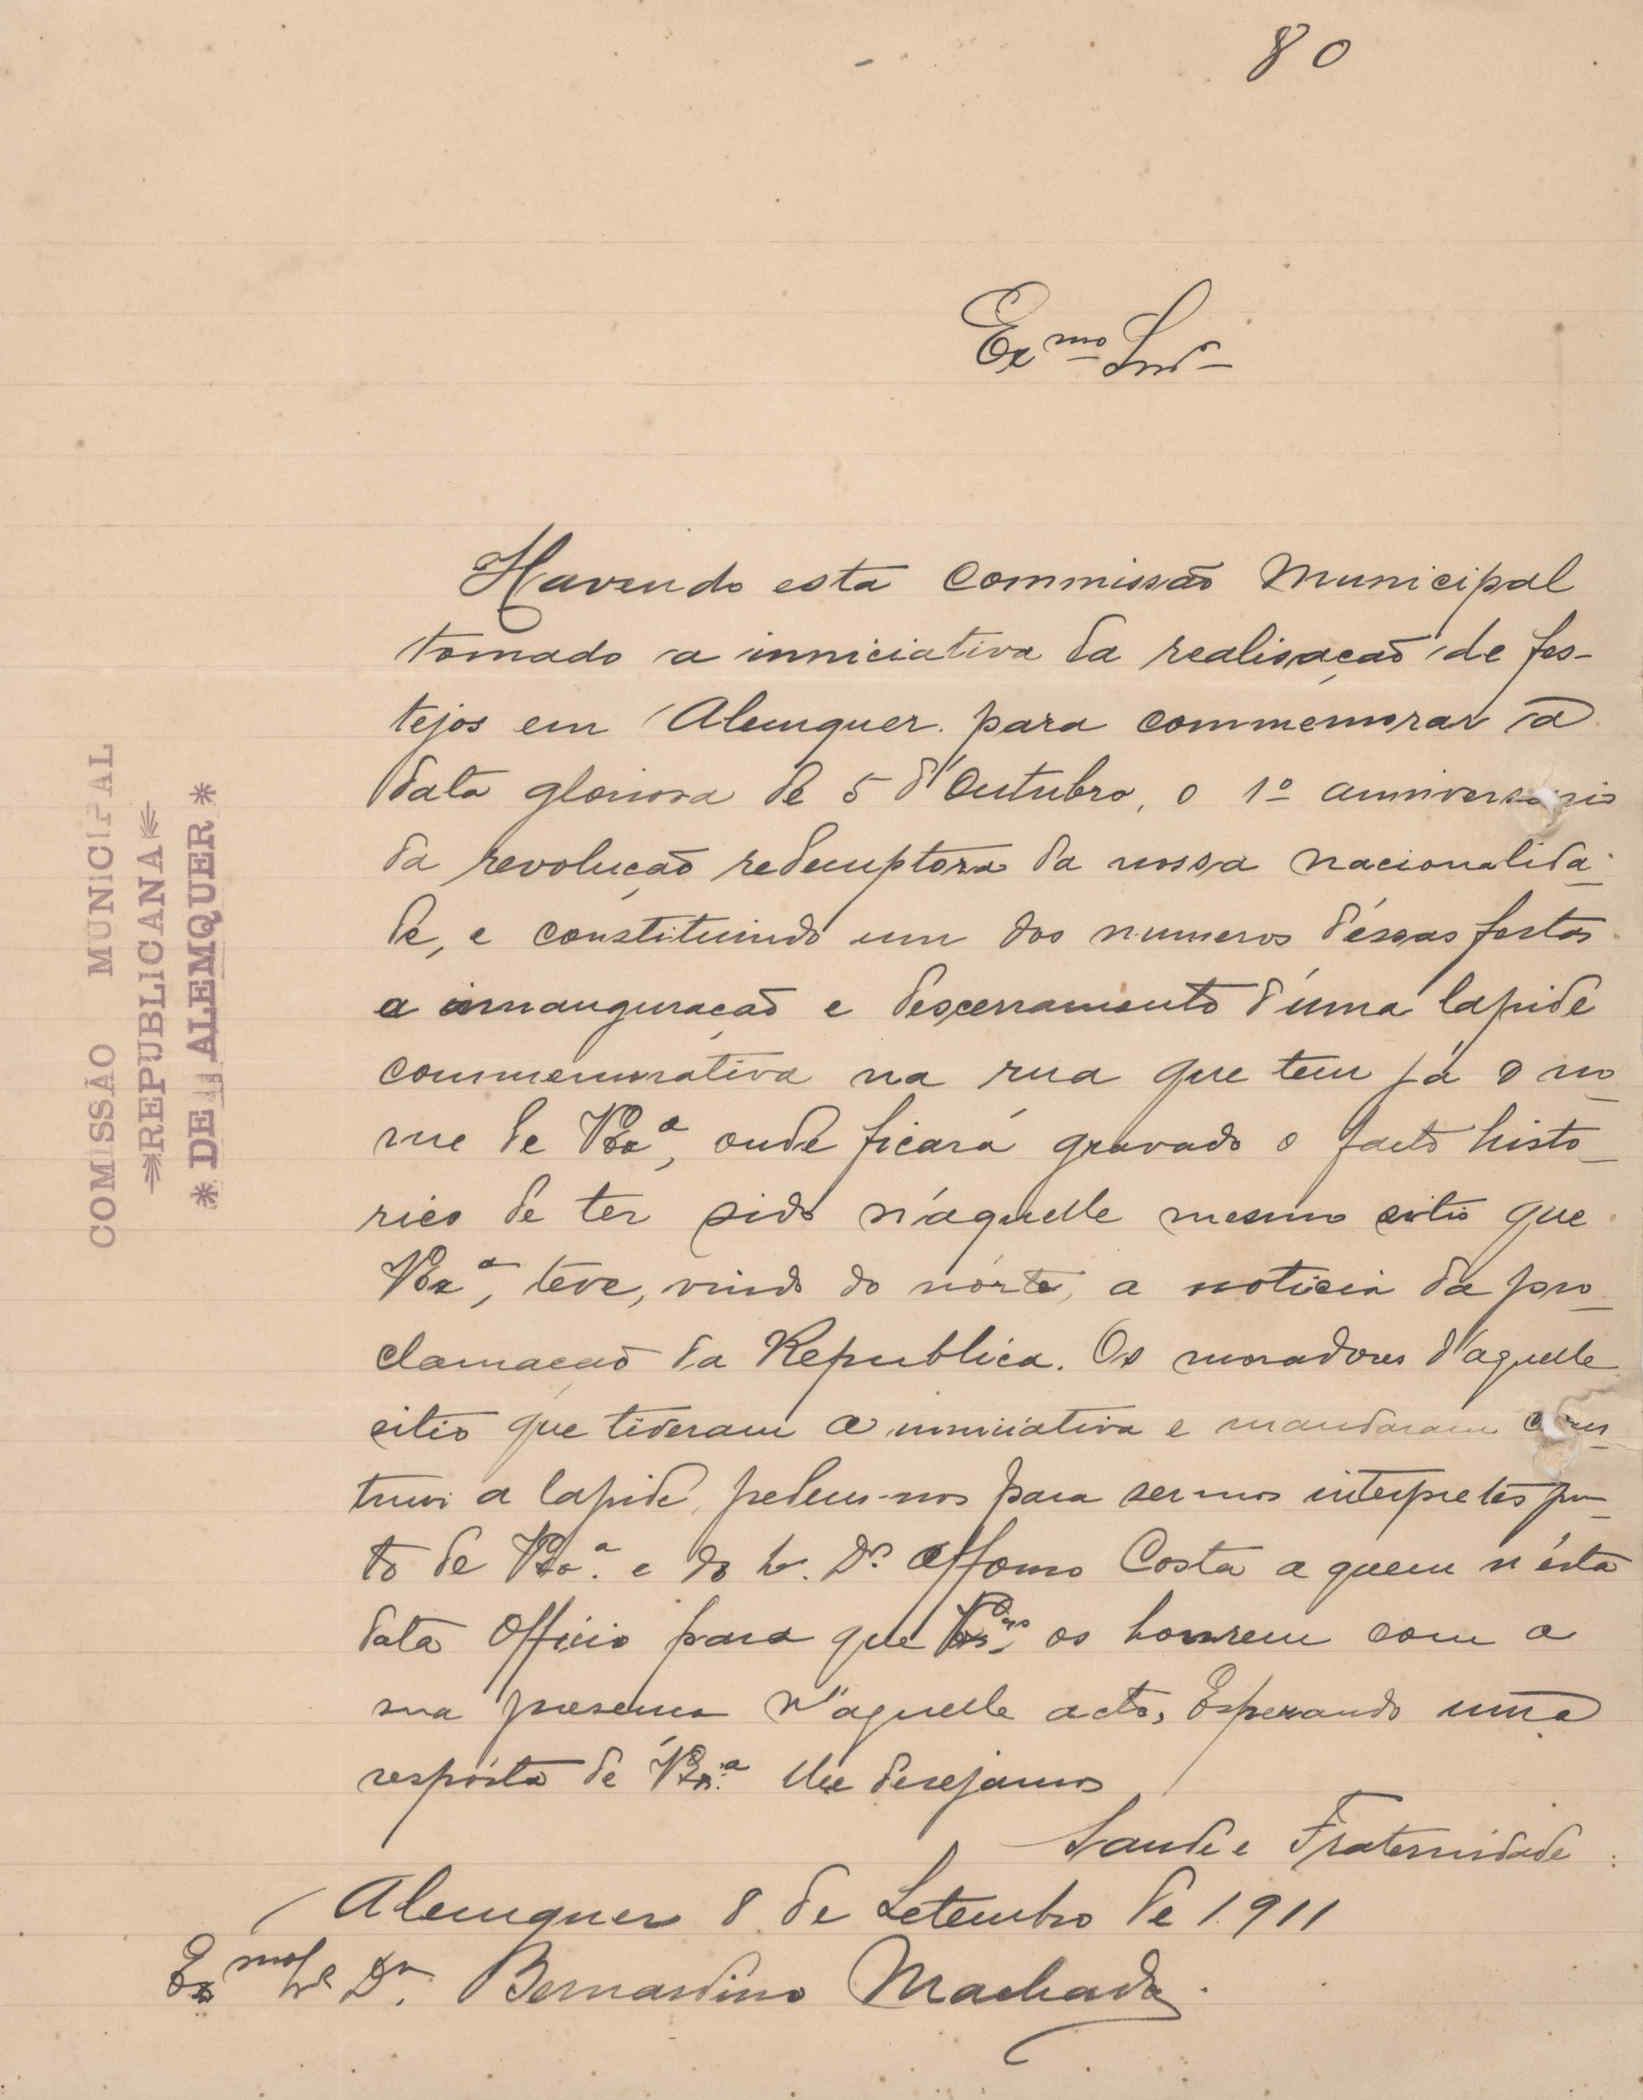 80
Exmo Snr
Havendo esta Commissão Municipal
tomado a inniciativa da realisação de fes-
tejos em Alemquer para commémorar a
data gloriosa de 5 d'Outubro, o 1º anniversario
da revolução redemptora da nossa nacionalida-
de, e constituindo um dos numeros d'éssas festas
a innauguração e descerramento d'uma lapide
commemorativa na rua que tem já o no-
me de V Exa, onde ficará gravado o facto histo-
rico de ter sido n'aquelle mesmo sitio que
V Exa, teve, vindo do nórte, a noticia da pro-
clamação da Republica. Os moradores d'aquelle
sitio que tiveram a inniciativa e mandaram cons-
truir a lapide, pedem-nos para sermos interpretes jun-
to de V Exa. e do Sr. Dr. Affonso Costa a quem n'ésta
data Officio para que V Exas, os honrem com a
sua presença n'aquelle acto, Esperando uma
respósta de V Exa. lhe desejamos
Saude e Fraternidade
Alemquer 8 de Setembro de 1911
Exmo Sr Dr. Bernardino Machado.
COMISSÃO MUNICIPAL
REPUBLICANA
* DE ALEMQUER *